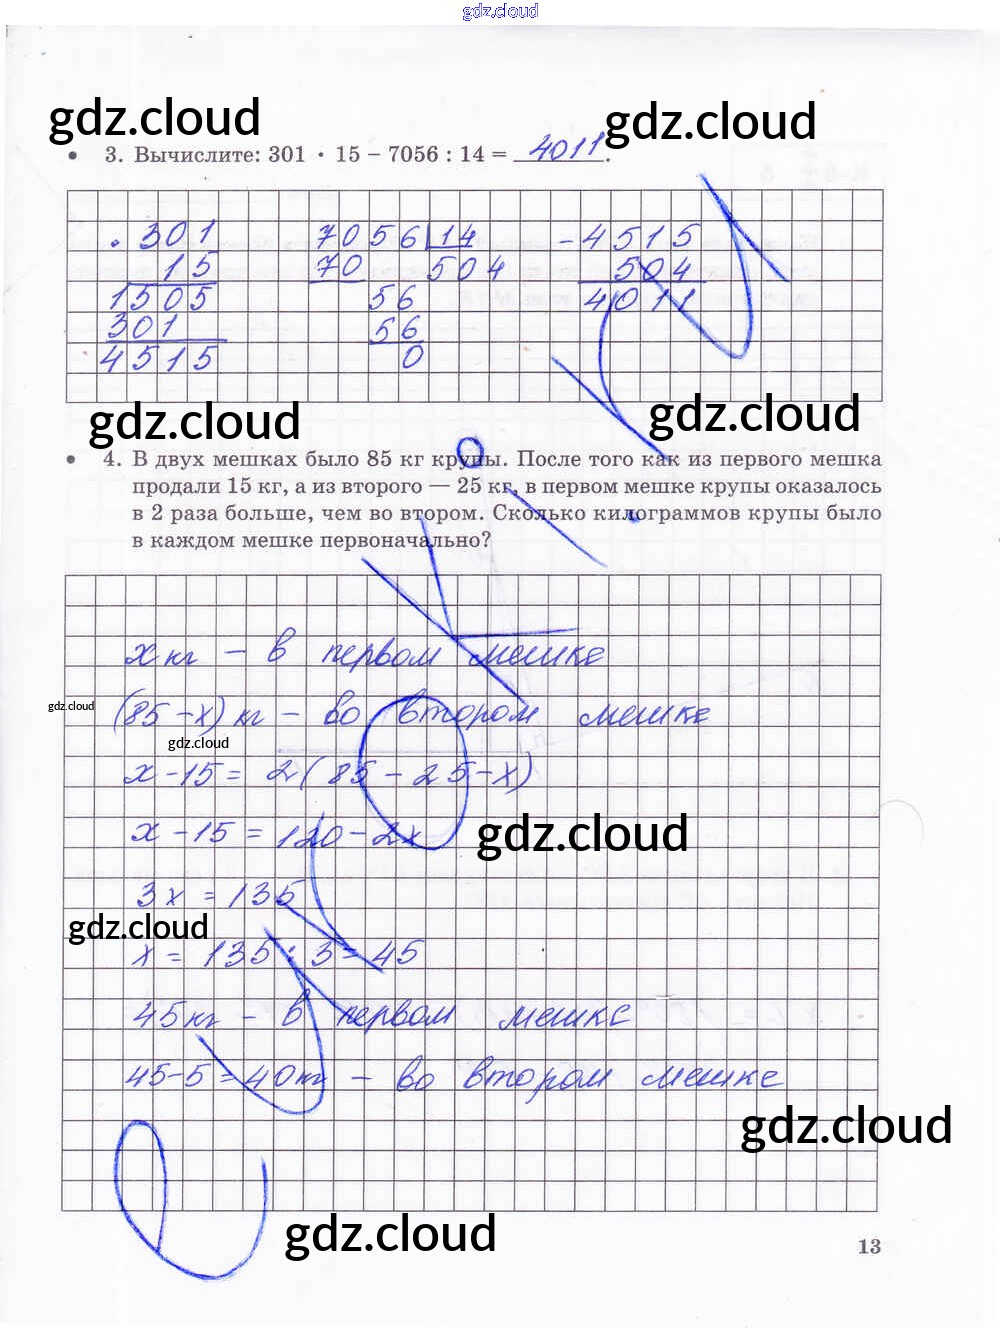 gdz.cloud
gdz.cloud
gdz.cloud
• 3. Вычислите: 301 · 15 – 7056 : 14 = 4011.
. 301
15
1505
301
4515
7056 14
70 504
56
56
0
- 4515
504
4011
gdz.cloud
gdz.cloud
• 4. В двух мешках было 85 кг крупы. После того как из первого мешка
продали 15 кг, а из второго — 25 кг, в первом мешке крупы оказалось
в 2 раза больше, чем во втором. Сколько килограммов крупы было
в каждом мешке первоначально?
x кг – в первом мешке
gdz.cloud
(85 – x) кг – во втором мешке
gdz.cloud
x – 15 = 2(85 – 25 – x)
x – 15 = 120 – 2x
gdz.cloud
3x = 135
gdz.cloud
x = 135 : 3 = 45
45 кг – в первом мешке
45 – 5 = 40 кг – во втором мешке
gdz.cloud
gdz.cloud
13